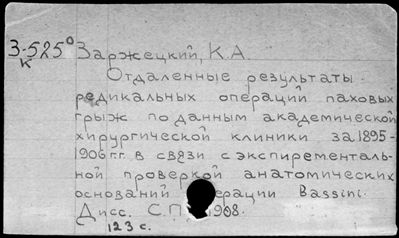 З-525° Заржецкий, К.А.
к
Отдаленные результаты
редикальных операций паховых
грыж по данным академической
хирургической клиники за 1895-
1906 г.г. в связи с экспиременталь-
ной проверкой анатомических
оснований ерации Bassini.
Дисс. С.П 1908.
123 с.